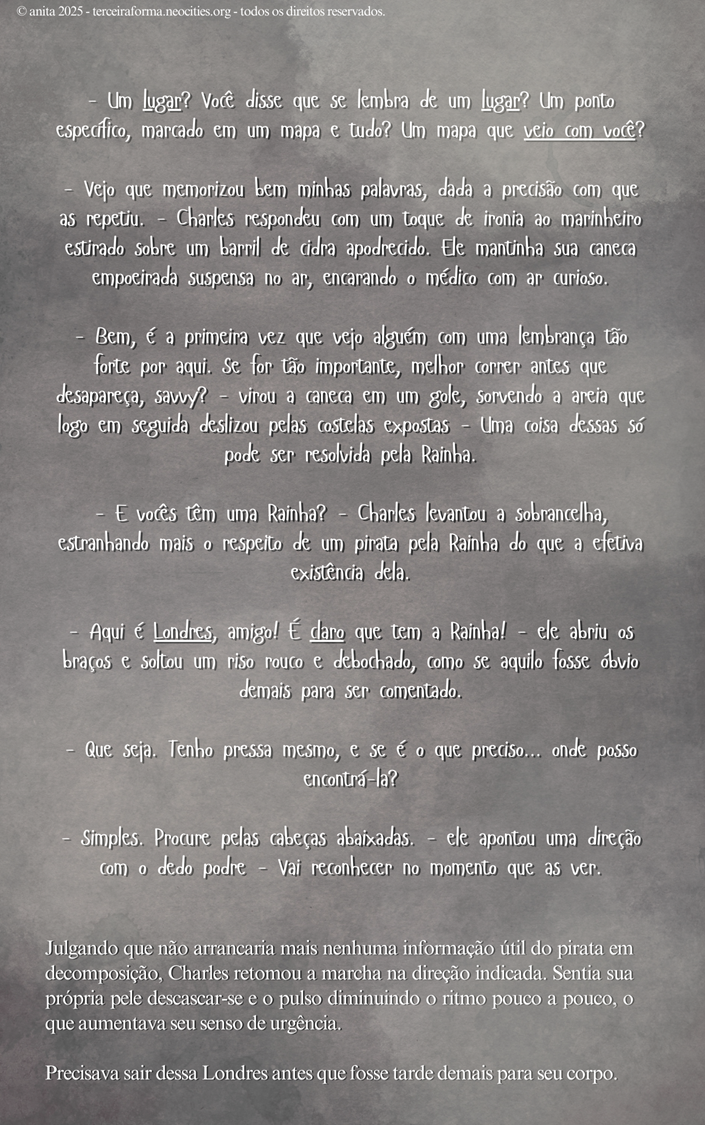 © anita 2025 - terceiraforma.neocities.org - todos os direitos reservados.
- Um lugar? Você disse que se lembra de um lugar? Um ponto
específico, marcado em um mapa e tudo? Um mapa que veio com você?
- Vejo que memorizou bem minhas palavras, dada a precisão com que
as repetiu. - Charles respondeu com um toque de ironia ao marinheiro
estirado sobre um barril de cidra apodrecido. Ele mantinha sua caneca
empoeirada suspensa no ar, encarando o médico com ar curioso.
- Bem, é a primeira vez que vejo alguém com uma lembrança tão
forte por aqui. Se for tão importante, melhor correr antes que
desapareça, savvy? - virou a caneca em um gole, sorvendo a areia que
logo em seguida deslizou pelas costelas expostas - Uma coisa dessas só
pode ser resolvida pela Rainha.
- E vocês têm uma Rainha? - Charles levantou a sobrancelha,
estranhando mais o respeito de um pirata pela Rainha do que a efetiva
existência dela.
- Aqui é Londres, amigo! É claro que tem a Rainha! - ele abriu os
braços e soltou um riso rouco e debochado, como se aquilo fosse óbvio
demais para ser comentado.
- Que seja. Tenho pressa mesmo, e se é o que preciso... onde posso
encontrá-la?
- Simples. Procure pelas cabeças abaixadas. - ele apontou uma direção
com o dedo podre - Vai reconhecer no momento que as ver.
Julgando que não arrancaria mais nenhuma informação útil do pirata em
decomposição, Charles retomou a marcha na direção indicada. Sentia sua
própria pele descascar-se e o pulso diminuindo o ritmo pouco a pouco, o
que aumentava seu senso de urgência.
Precisava sair dessa Londres antes que fosse tarde demais para seu corpo.